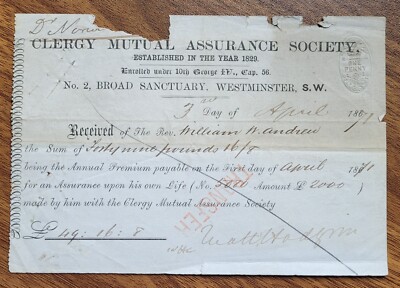 Dr Norw
CLERGY MUTUAL ASSURANCE SOCIETY,
ESTABLISHED IN THE YEAR 1829.
Enrolled under 10th George IV., Cap. 56.
No. 2, BROAD SANCTUARY, WESTMINSTER, S.W.
3 Day of April 1871
Received of The Rev. William W. Andrew
the Sum of Forty nine pounds 16/8
being the Annual Premium payable on the First day of April 1871
for an Assurance upon his own Life (No. Amount £ 2000)
made by him with the Clergy Mutual Assurance Society
£ 49: 16: 8
Matt Hodgson